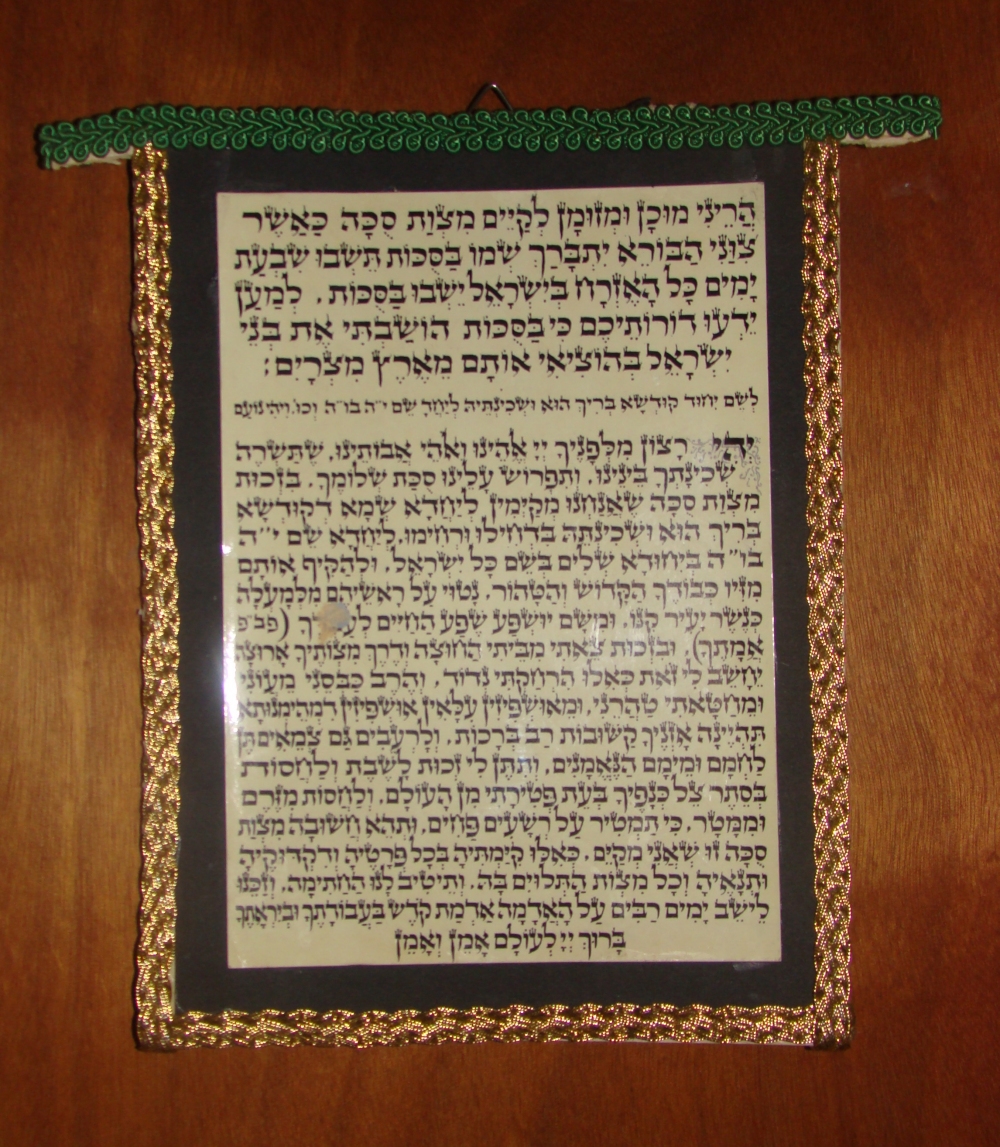 הֲרֵינִי מוּכָן וּמְזוּמָן לְקַיֵּים מִצְוַת סֻכָּה כַּאֲשֶׁר
צִוַּנִי הַבּוֹרֵא יִתְבָּרַךְ שְׁמוֹ בַּסֻּכּוֹת תֵּשְׁבוּ שִׁבְעַת
יָמִים כָּל הָאֶזְרָח בְּיִשְׂרָאֵל יֵשְׁבוּ בַּסֻּכּוֹת. לְמַעַן
יֵדְעוּ דוֹרוֹתֵיכֶם כִּי בַּסֻּכּוֹת הוֹשַׁבְתִּי אֶת בְּנֵי
יִשְׂרָאֵל בְּהוֹצִיאִי אוֹתָם מֵאֶרֶץ מִצְרָיִם:
לְשֵׁם יִחוּד קוּדְשָׁא בְּרִיךְ הוּא וּשְׁכִינְתֵּיהּ לְיַחֵד שֵׁם י״ה בו״ה וְכוּ׳. וִיהִי נוֹעַם
יְהִי רָצוֹן מִלְּפָנֶיךָ יְיָ אֱהֵינוּ וֵאהֵי אֲבוֹתֵינוּ, שֶׁתַּשְׁרֶה
שְׁכִינָתְךָ בֵּינֵינוּ. וְתִפְרוֹשׁ עָלֵינוּ סֻכַּת שְׁלוֹמֶךָ. בִּזְכוּת
מִצְוַת סֻכָּה שֶׁאֲנַחְנוּ מְקַיְמִין לְיַחֲדָא שְׁמָא דְקוּדְשָׁא
בְּרִיךְ הוּא וּשְׁכִינְתֵּהּ בִּדְחִילוּ וּרְחִימוּ. לְיַחֲדָא שֵׁם י״ה
בו״ה בְּיִחוּדָא שְׁלִים בְּשֵׁם כָּל יִשְׂרָאֵל. וּלְהַקִּיף אוֹתָם
מִזִּיו כְּבוֹדְךָ הַקָּדוֹשׁ וְהַטָּהוֹר. נָטוּי עַל רָאשֵׁיהֶם מִלְמַעְלָה
כְּנֶשֶׁר יָעִיר קִנּוֹ. וּמִשָּׁם יוּשְׁפַּע שֶׁפַע הַחַיִּים (פב״פ
אֲמָתֶךָ). וּבִזְכוּת צֵאתִי מִבֵּיתִי הַחוּצָה וְדֶרֶךְ מִצְוֹתֶיךָ אָרוּצָה
יֵחָשֵׁב לִי זֹאת כְּאִלּוּ הִרְחַקְתִּי נְדוֹד. וְהֶרֶב כַּבְּסֵנִי מֵעֲוֹנִי
וּמֵחַטָּאתִי טַהֲרֵנִי. וּמֵאוּשְׁפִּיזִין עִלָּאִין אוּשְׁפִּיזִין דִמְהֵימְנוּתָא
תִּהְיֶינָה אָזְנֶיךָ קַשּׁוּבוֹת רַב בְּרָכוֹת. וְלִרְעֵבִים גַּם צְמֵאִים תֵּן
לַחְמָם וּמֵימָם הַנֶּאֱמָנִים. וְתִתֵּן לִי זְכוּת לָשֶׁבֶת וְלַחֲסוֹת
בְּסֵתֶר צֵל כְּנָפֶיךָ בְּעֵת פְּטִירָתִי מִן הָעוֹלָם. וְלַחֲסוֹת מִזֶּרֶם
וּמִמָּטָר. כִּי תַמְטִיר עַל רְשָׁעִים פַּחִים. וּתְהֵא חֲשׁוּבָה מִצְוַת
סֻכָּה זוּ שֶׁאֲנִי מְקַיֵּם. כְּאִלּוּ קִיַּמְתִּיהָ בְּכָל פְּרָטֶיהָ וְדִקְדּוּקֶיהָ
וּתְנָאֶיהָ וְכָל מִצְוֹת הַתְּלוּיִם בָּהּ. וְתֵיטִיב לָנוּ הַחֲתִימָה. וְזַכֵּנוּ
לֵישֵׁב יָמִים רַבִּים עַל הָאֲדָמָה אַדְמַת קֹדֶשׁ בַּעֲבוֹדָתֶךָ וּבְיִרְאָתֶךָ
בָּרוּךְ יְיָ לְעוֹלָם אָמֵן וְאָמֵן